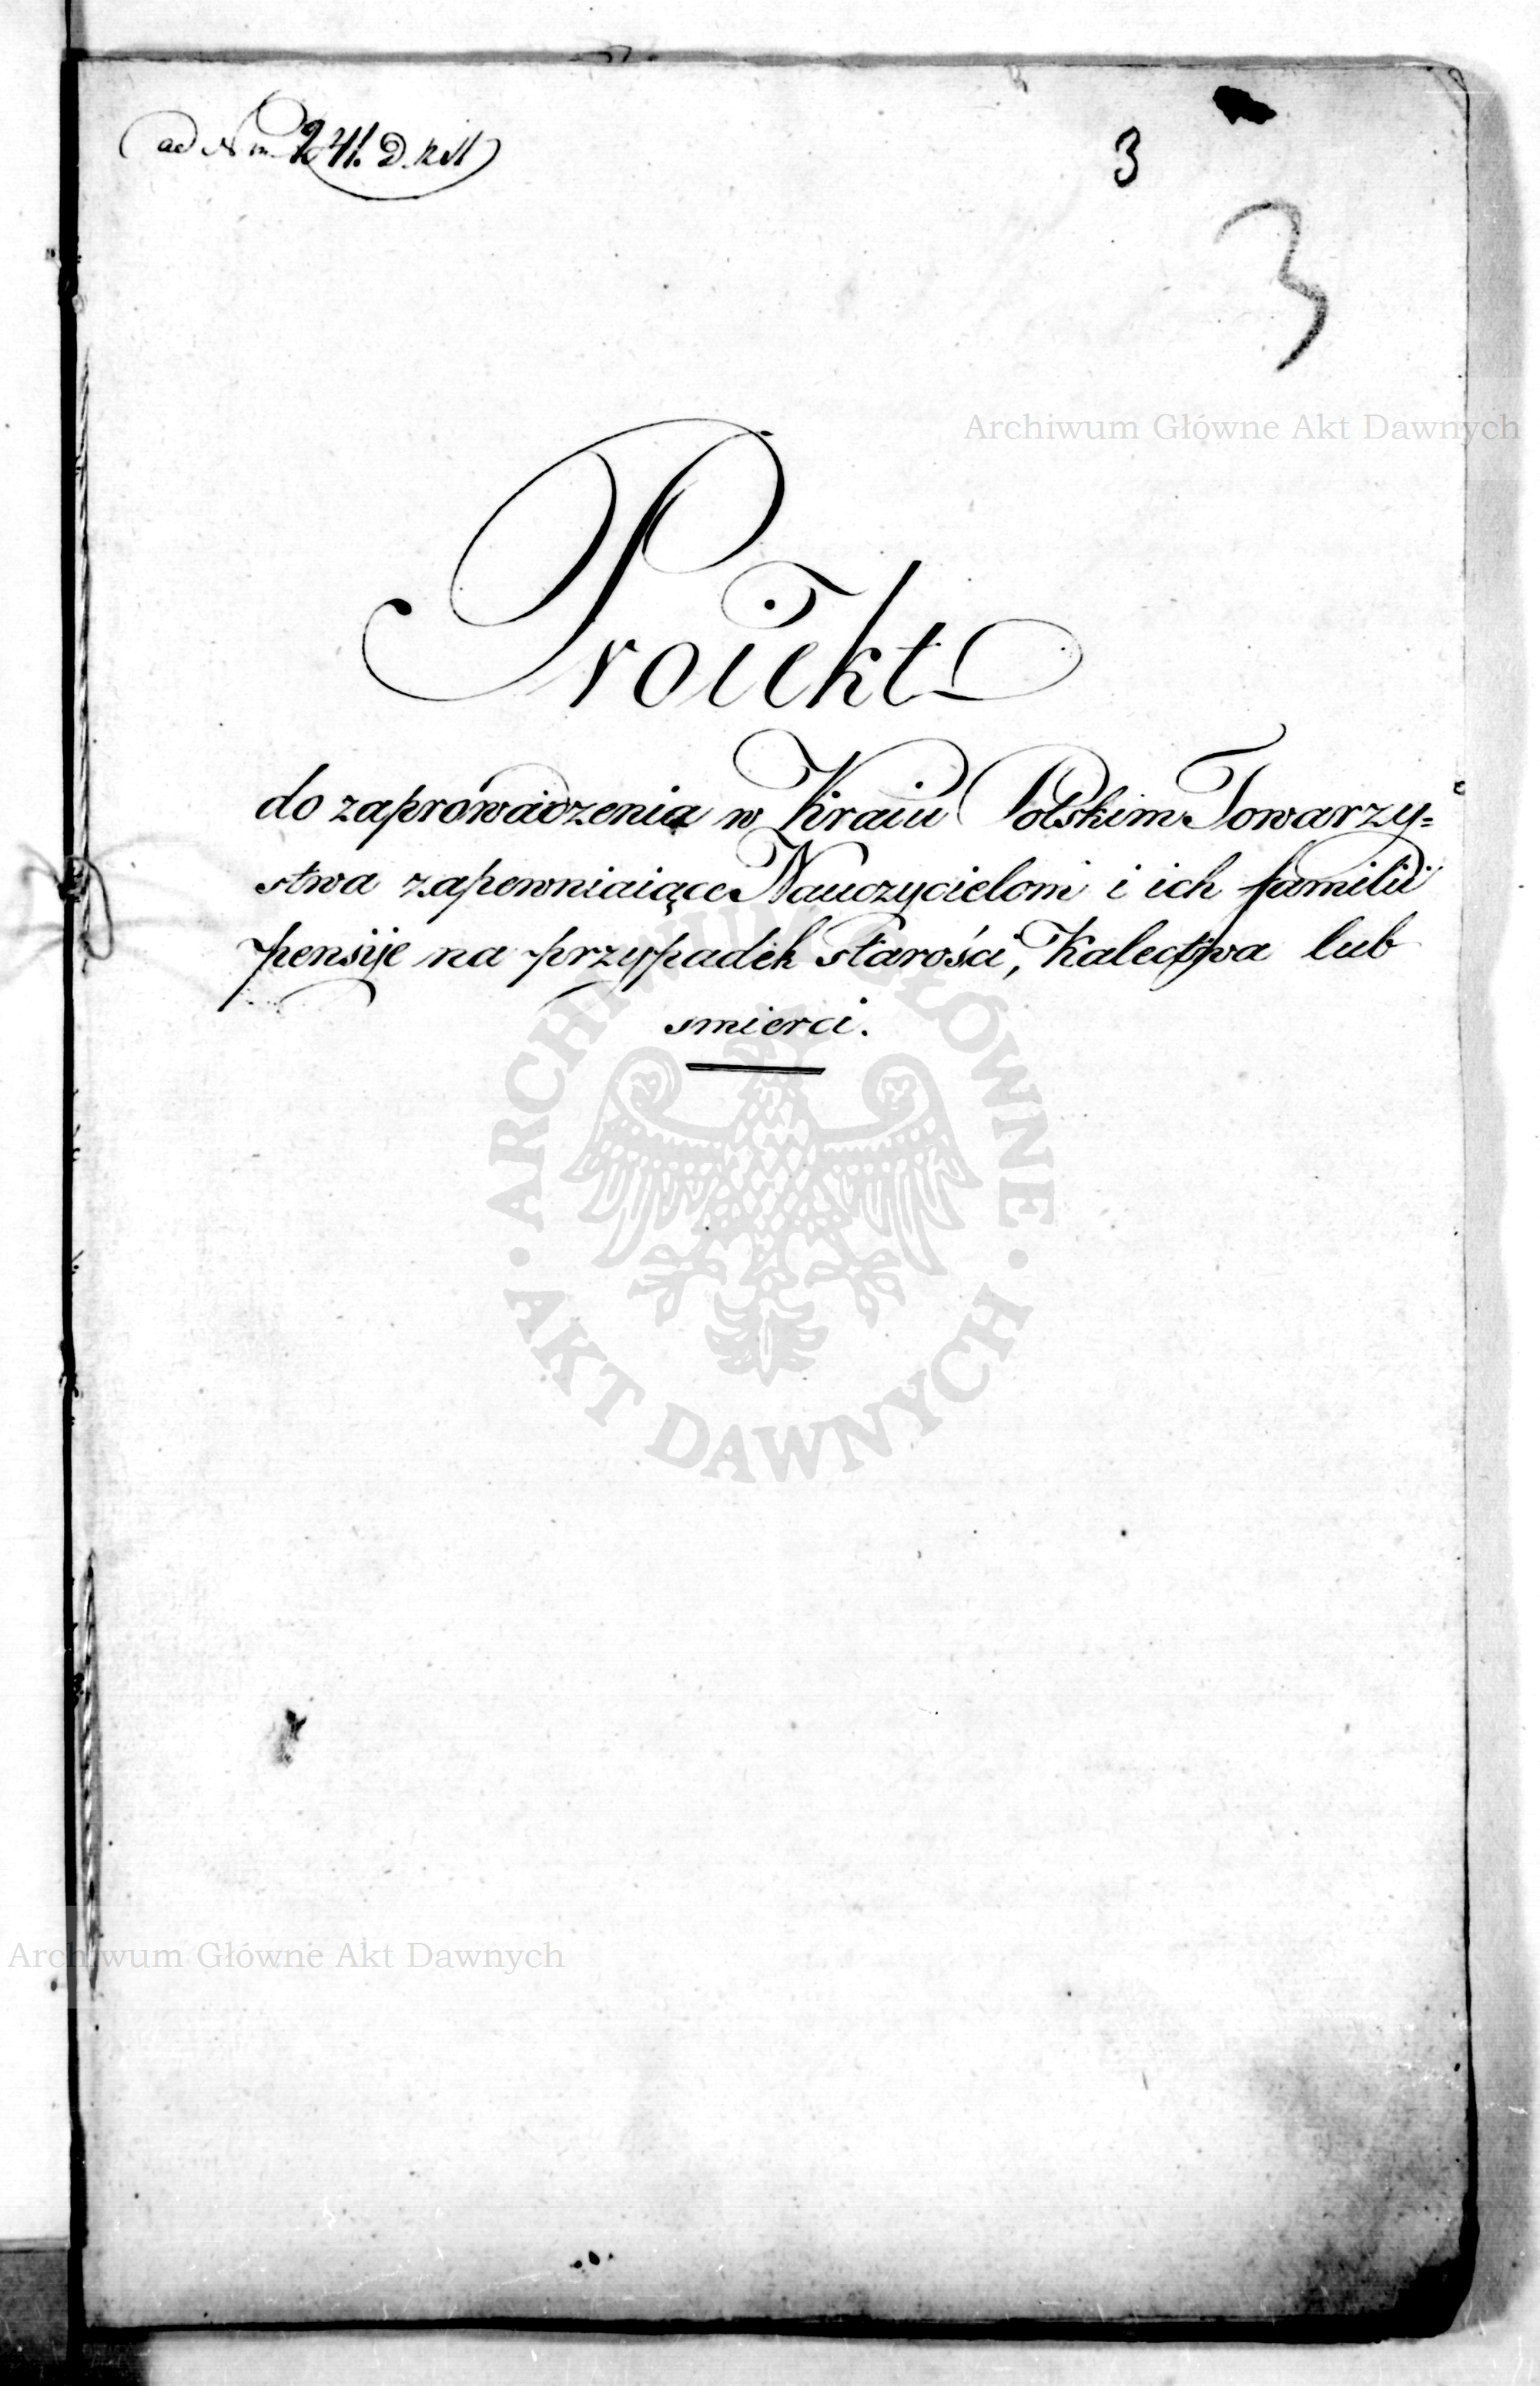 ad Nrm 241. D.
3
3
Archiwum Główne Akt Dawnych
Proiekt
do zaprowadzenia w Kraiu Polskim Towarzy=
stwa zapewniaiące Nauczycielom i ich familii
pensije na przypadek starości, Kalectwa lub
smierci.
ARCHIWUM GŁÓWNE
AKT DAWNYCH
Archiwum Główne Akt Dawnych